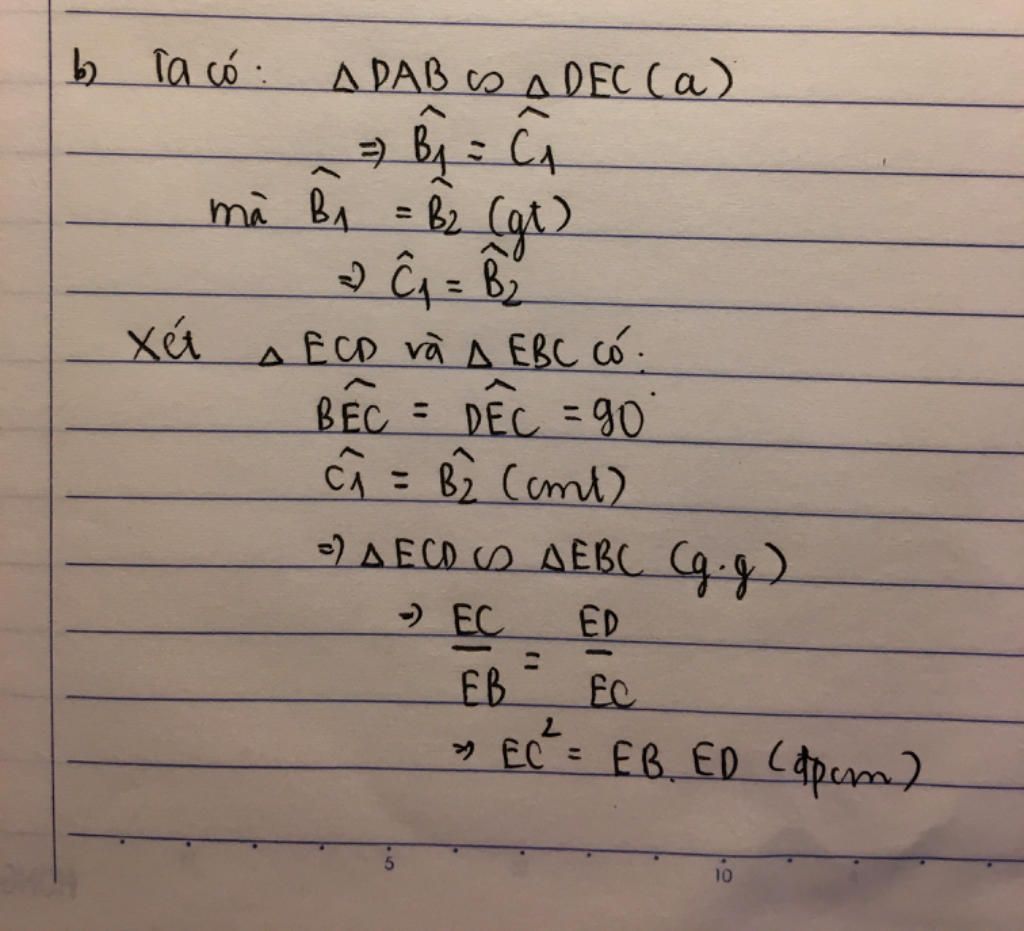 b) Ta có: △DAB ∽ △DEC (a)
⇒ B̂1 = Ĉ1
mà B̂1 = B̂2 (gt)
⇒ Ĉ1 = B̂2
Xét △ECD và △EBC có:
BÊC = DÊC = 90°
Ĉ1 = B̂2 (cmt)
⇒ △ECD ∽ △EBC (g.g)
⇒ EC/EB = ED/EC
⇒ EC² = EB.ED (đpcm)
5 10